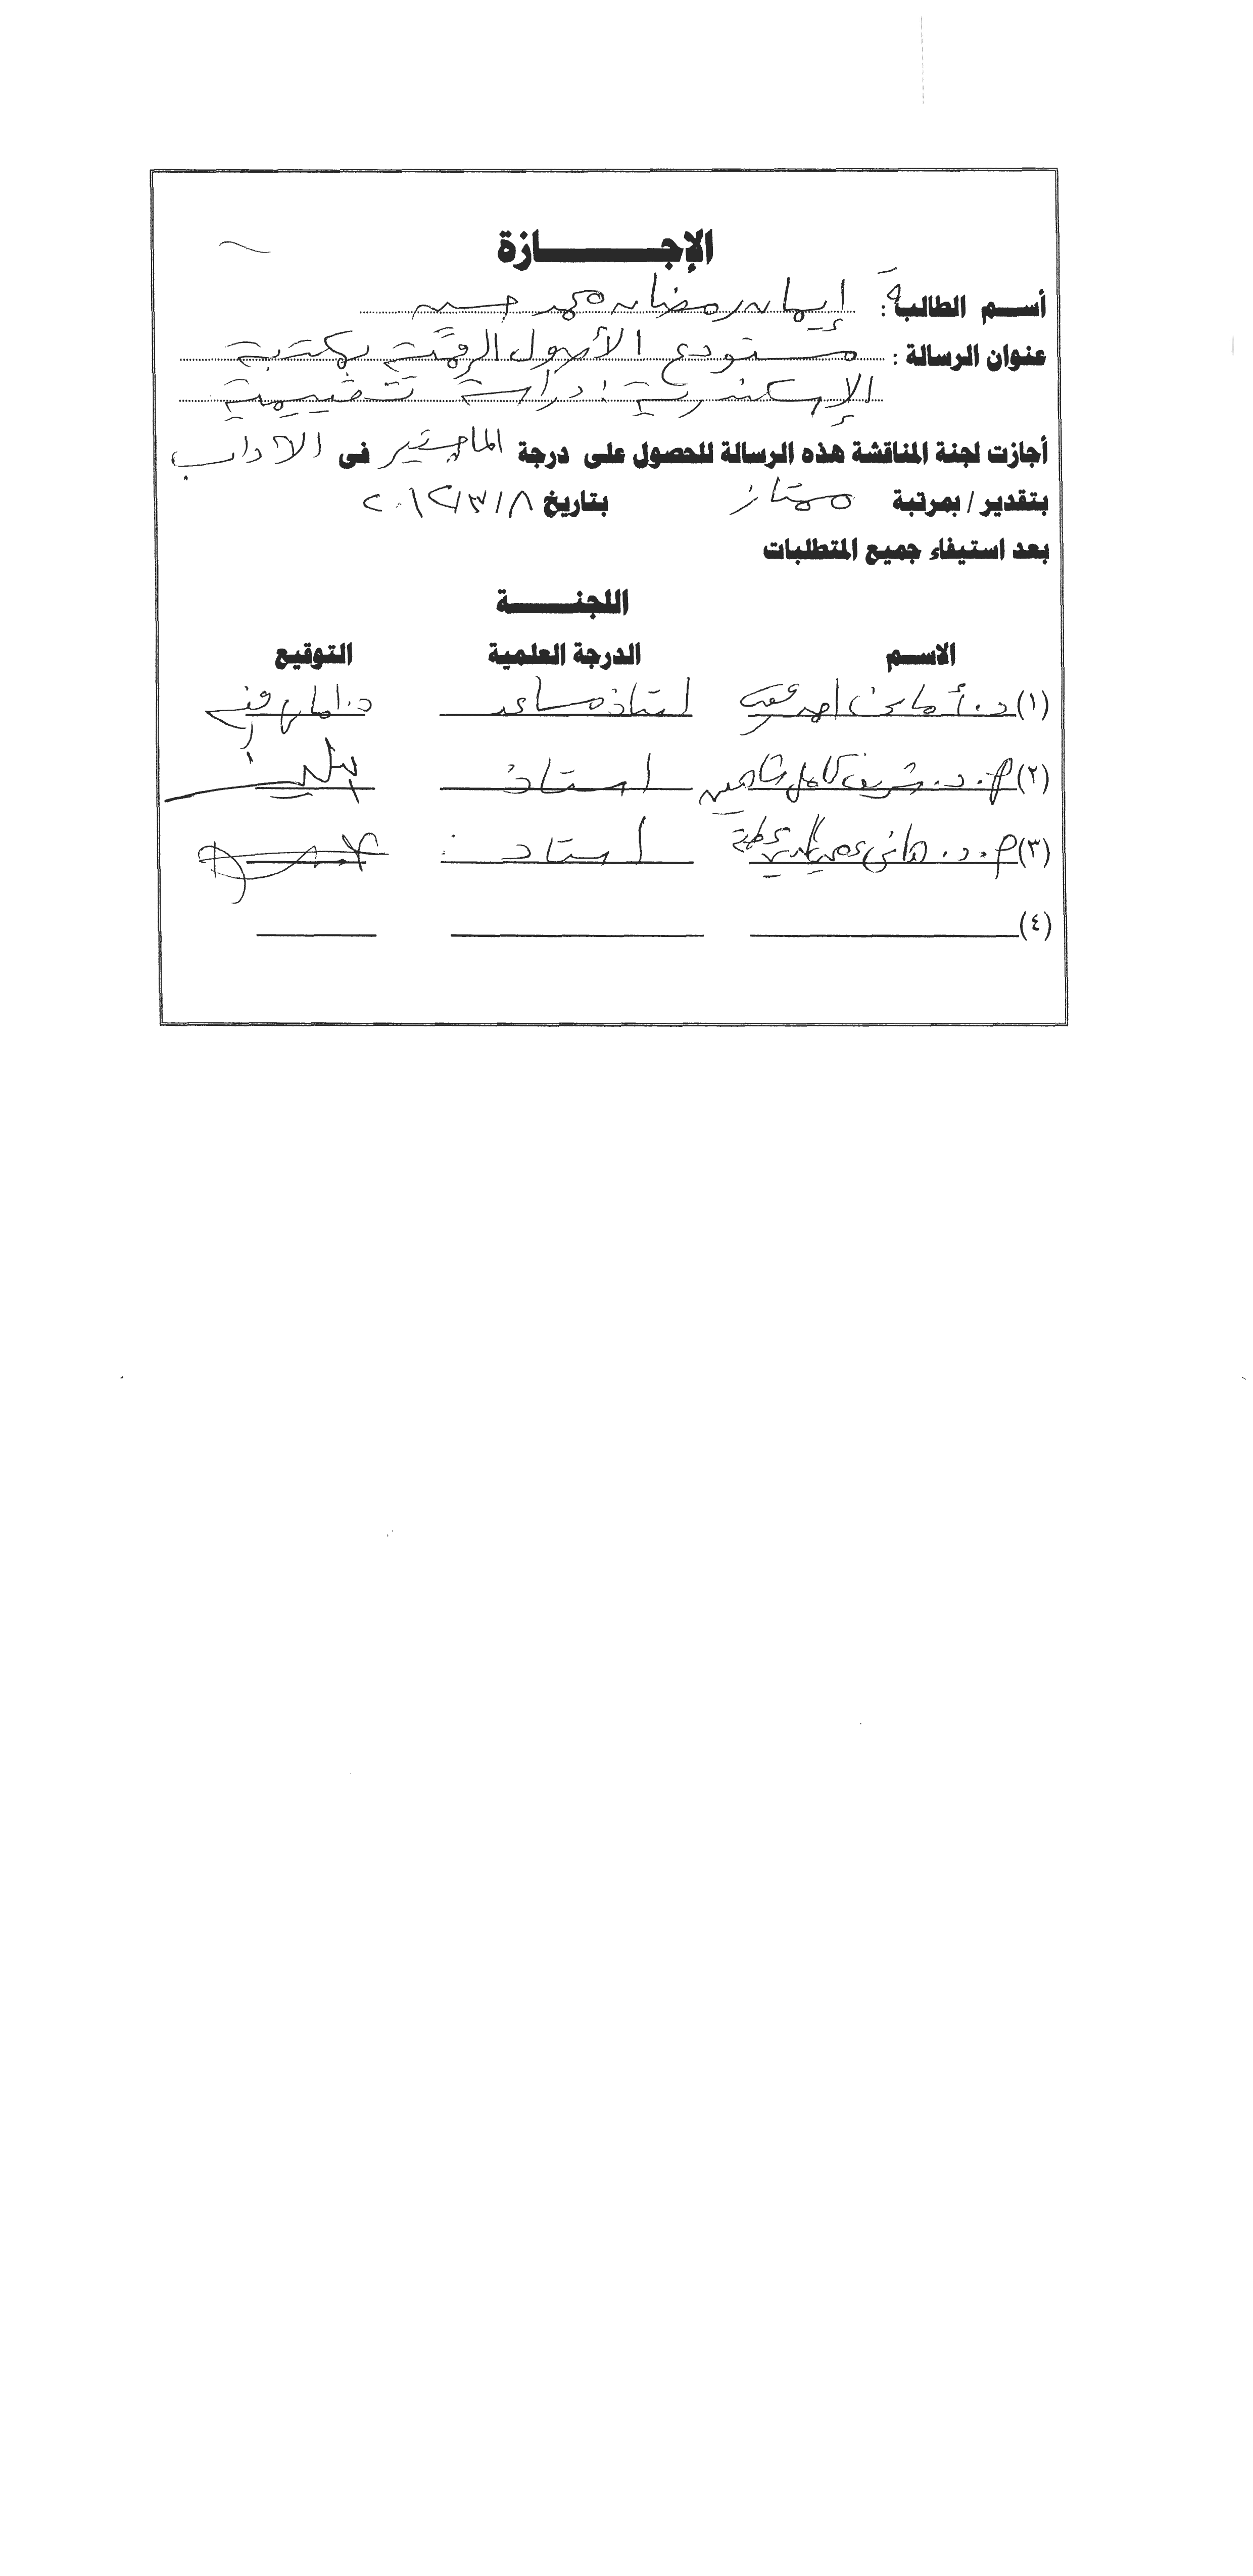 الإجازة
أسم الطالبة : إيمان رمضان محمد حسن
عنوان الرسالة : مستودع الأصول الرقمية بمكتبة
الإسكندرية : دراسة تقييمية
أجازت لجنة المناقشة هذه الرسالة للحصول على درجة الماجستير فى الآداب
بتقدير / بمرتبة ممتاز بتاريخ ٢٠١٢/٣/٨
بعد استيفاء جميع المتطلبات
اللجنة
الاسم الدرجة العلمية التوقيع
(١) د. أمانى أحمد استاذ مساعد د. أمانى
(٢) أ.د. شريف كامل شاهين استاذ
(٣) أ.د. هانى محيى الدين عطية استاذ
(٤)